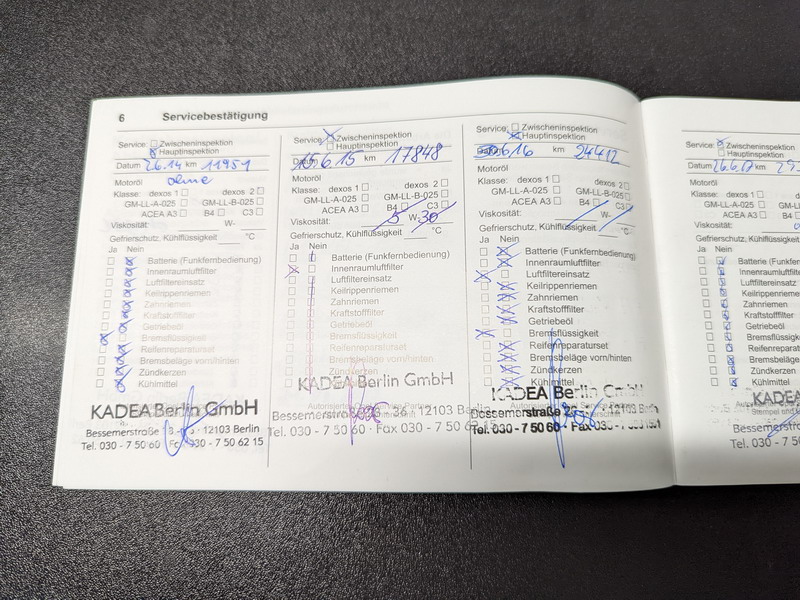 6 Servicebestätigung
Service: Zwischeninspektion
Hauptinspektion
Datum 26.14 km 11951
Motoröl ohne
Klasse: dexos 1 dexos 2
GM-LL-A-025 GM-LL-B-025
ACEA A3 B4 C3
Viskosität: W-
Gefrierschutz, Kühlflüssigkeit °C
Ja Nein
Batterie (Funkfernbedienung)
Innenraumluftfilter
Luftfiltereinsatz
Keilrippenriemen
Zahnriemen
Kraftstofffilter
Getriebeöl
Bremsflüssigkeit
Reifenreparaturset
Bremsbeläge vorn/hinten
Zündkerzen
Kühlmittel
KADEA Berlin GmbH
Bessemerstraße 12103 Berlin
Tel. 030 - 7 50 60 Fax 030 - 7 50 62 15
Service: Zwischeninspektion
Hauptinspektion
Datum 15.6.15 km 17848
Motoröl
Klasse: dexos 1 dexos 2
GM-LL-A-025 GM-LL-B-025
ACEA A3 B4 C3
Viskosität: 5 W- 30
Gefrierschutz, Kühlflüssigkeit °C
Ja Nein
Batterie (Funkfernbedienung)
Innenraumluftfilter
Luftfiltereinsatz
Keilrippenriemen
Zahnriemen
Kraftstofffilter
Getriebeöl
Bremsflüssigkeit
Reifenreparaturset
Bremsbeläge vorn/hinten
Zündkerzen
KADEA Berlin GmbH
Bessemerstraße 12103 Berlin
Tel. 030 - 7 50 60 · Fax 030 - 7 50 62 15
Service: Zwischeninspektion
Hauptinspektion
Datum 6 16 km 24412
Motoröl
Klasse: dexos 1 dexos 2
GM-LL-A-025 GM-LL-B-025
ACEA A3 B4 C3
Viskosität: W-
Gefrierschutz, Kühlflüssigkeit °C
Ja Nein
Batterie (Funkfernbedienung)
Innenraumluftfilter
Luftfiltereinsatz
Keilrippenriemen
Zahnriemen
Kraftstofffilter
Getriebeöl
Bremsflüssigkeit
Reifenreparaturset
Bremsbeläge vorn/hinten
Zündkerzen
Kühlmittel
KADEA Berlin GmbH
Bessemerstraße 12103 Berlin
Tel. 030 - 7 50 60 · Fax 030
Service: Zwischeninspektion
Hauptinspektion
Datum 26.6.17 km
Motoröl
Klasse: dexos 1
GM-LL-A-025
ACEA A3
Viskosität:
Gefrierschutz, Kühlflüssigkeit
Ja Nein
Batterie (Funkfernb
Innenraumluftfilter
Luftfiltereinsatz
Keilrippenriemen
Zahnriemen
Kraftstofffilter
Getriebeöl
Bremsflüssigkeit
Reifenreparaturs
Bremsbeläge vor
Zündkerzen
Kühlmittel
KADEA
Bessemerstr
Tel. 030 - 7